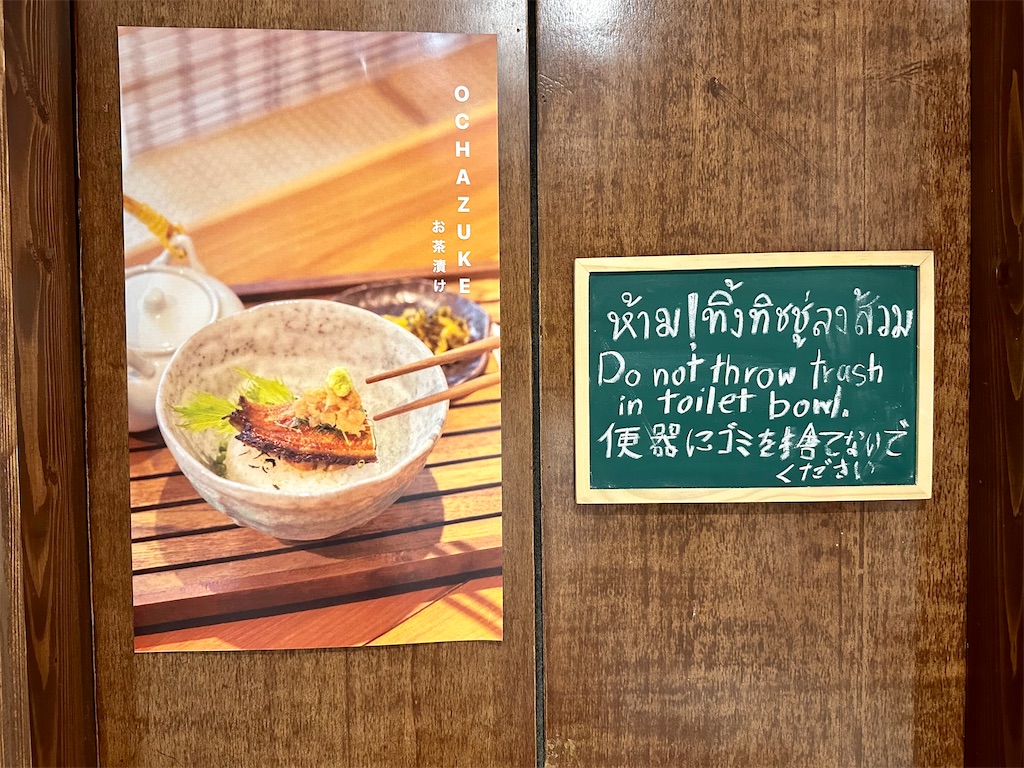 OCHAZUKE
お茶漬け
ห้าม! ทิ้งทิชชู่ลงส้วม
Do not throw trash
in toilet bowl.
便器にゴミを捨てないで
ください